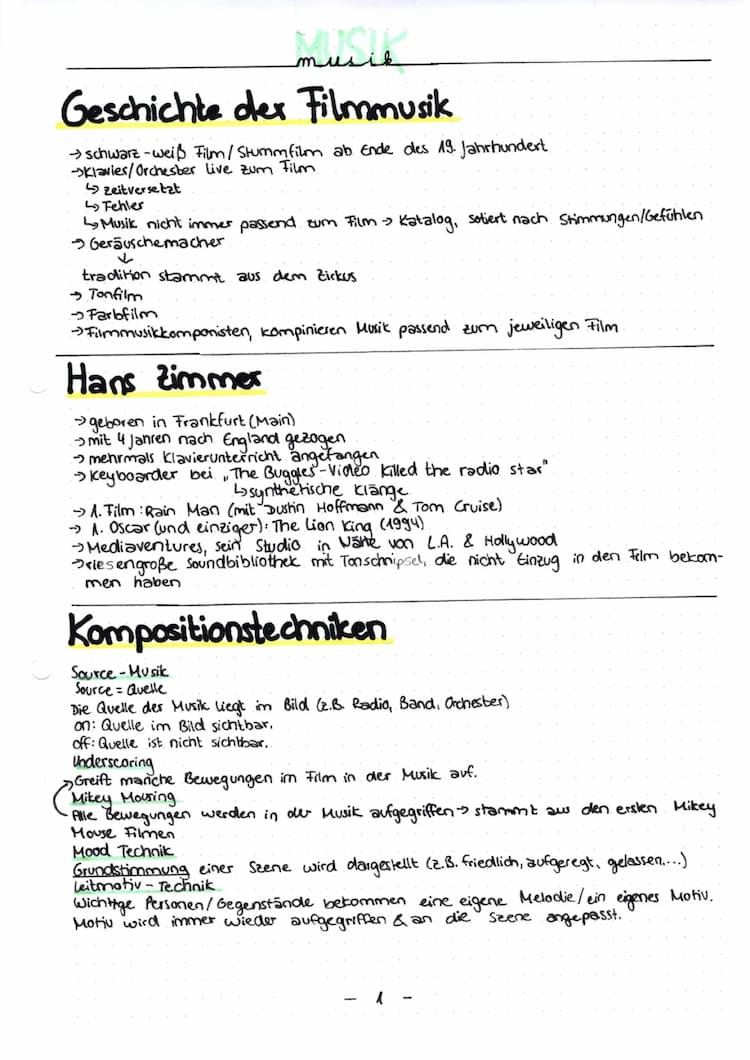 MUSIK
musik
Geschichte der Filmmusik
→ schwarz-weiß Film/Stummfilm ab Ende des 19. Jahrhundert
→ Klavier/Orchester live zum Film
↳ zeitversetzt
↳ Fehler
↳ Musik nicht immer passend zum Film → Katalog, sotiert nach Stimmungen/Gefühlen
→ Geräuschemacher
↓
tradition stammt aus dem Zirkus
→ Tonfilm
→ Farbfilm
→ Filmmusikkomponisten, kompinieren Musik passend zum jeweiligen Film
Hans Zimmer
→ geboren in Frankfurt (Main)
→ mit 4 Jahren nach England gezogen
→ mehrmals Klavierunterricht angefangen
→ Keyboarder bei „The Buggles - Video killed the radio star"
↳ synthetische Klänge
→ 1. Film: Rain Man (mit Dustin Hoffmann & Tom Cruise)
→ 1. Oscar (und einziger): The Lion King (1994)
→ Mediaventures, sein Studio in Nähe von L.A. & Hollywood
→ riesengroße Soundbibliothek mit Tonschnipsel, die nicht Einzug in den Film bekom-
men haben
Kompositionstechniken
Source - Musik
Source = Quelle
Die Quelle der Musik liegt im Bild (z.B. Radio, Band, Orchester)
on: Quelle im Bild sichtbar.
off: Quelle ist nicht sichtbar.
Underscoring
Greift manche Bewegungen im Film in der Musik auf.
Mikey Mousing
Alle Bewegungen werden in der Musik aufgegriffen → stammt aus den ersten Mikey
Mouse Filmen
Mood Technik
Grundstimmung einer Szene wird dargestellt (z.B. friedlich, aufgeregt, gelassen,...)
Leitmotiv - Technik
Wichtige Personen/Gegenstände bekommen eine eigene Melodie/ein eigenes Motiv.
Motiv wird immer wieder aufgegriffen & an die Szene angepasst.
- 1 -